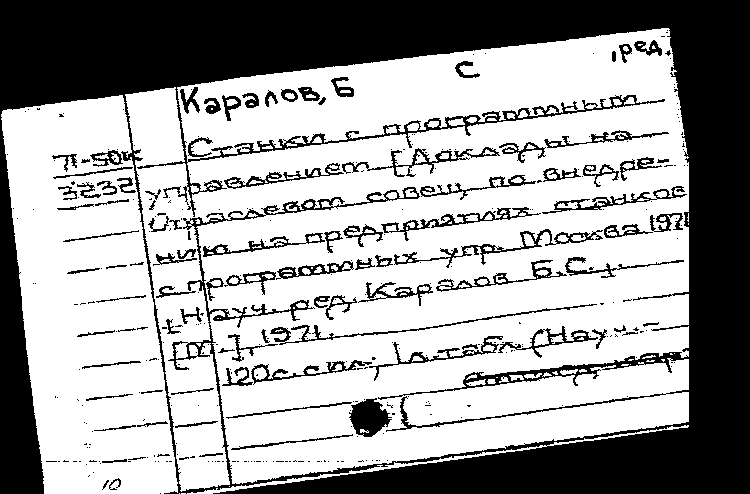 Каралов, Б С , ред.
71-50к Станки с программным
3232 управлением [Доклады на
Отраслевом совещ. по внедре-
нию на предприятиях станков
с программных упр. Москва 1971
Науч. ред. Каралов Б.С.
[М.], 1971.
120с. с ил.; 1 л. табл. (Науч.-
10